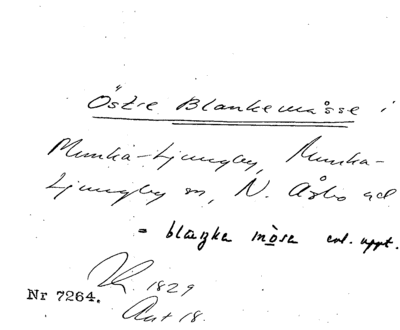 Östre Blankemåsse i
Munka-Ljungby, Munka-
Ljungby sn, N. Åsbo hd
= blaŋka mòsa enl. uppt.
1829
Nr 7264.
Akt 18.